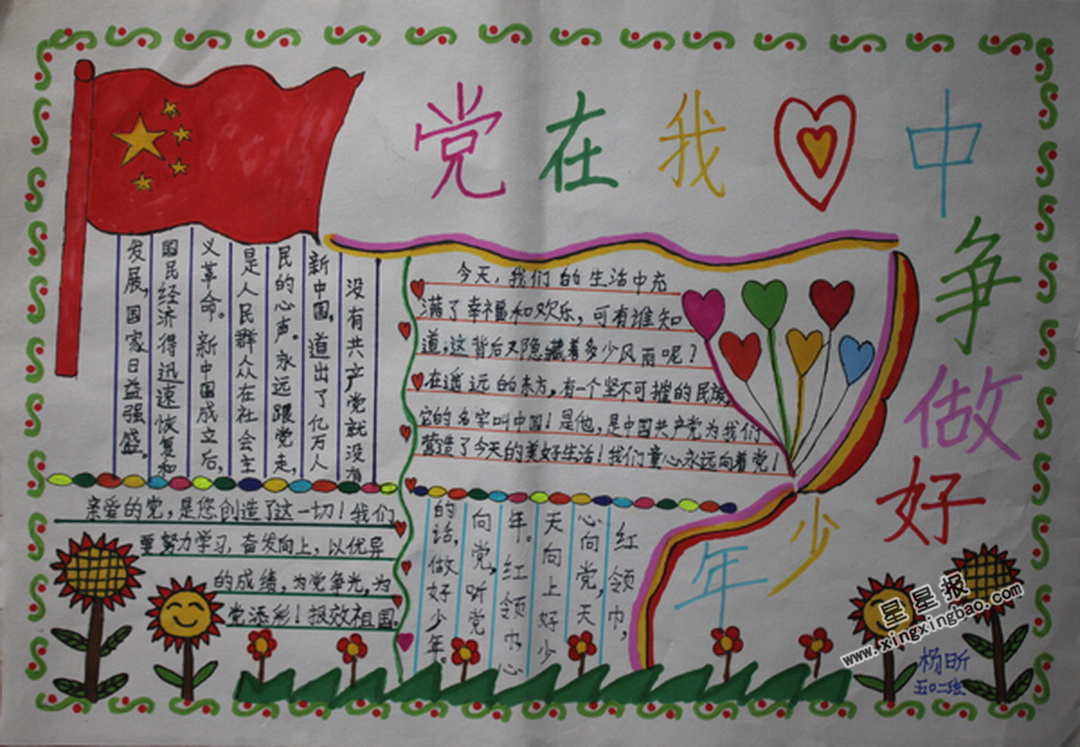 党在我中
争做好少年
没有共产党就没有
新中国，道出了亿万人
民的心声。永远跟党走，
是人民群众在社会主
义革命。新中国成立后，
国民经济得迅速恢复和
发展，国家日益强盛。
今天，我们的生活中充
满了幸福和欢乐，可有谁知
道，这背后又隐藏着多少风雨呢？
在遥远的东方，有一个坚不可摧的民族，
它的名字叫中国！是他，是中国共产党为我们
营造了今天的美好生活！我们童心永远向着党！
亲爱的党，是您创造了这一切！我们
要努力学习，奋发向上，以优异
的成绩，为党争光，为
党添彩！报效祖国。
红领巾，
心向党，天
天向上好少
年。红领巾心
向党，听党
的话，做好少年。
星星报
www.xingxingbao.com
杨昕
五〇二班